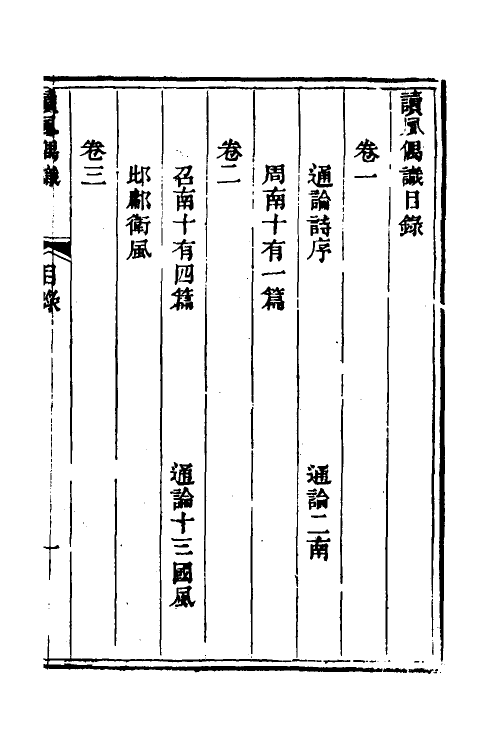 讀風偶識目錄
卷一
通論詩序 通論二南
周南十有一篇
卷二
召南十有四篇 通論十三國風
邶鄘衛風
卷三
讀風偶識 目錄 一